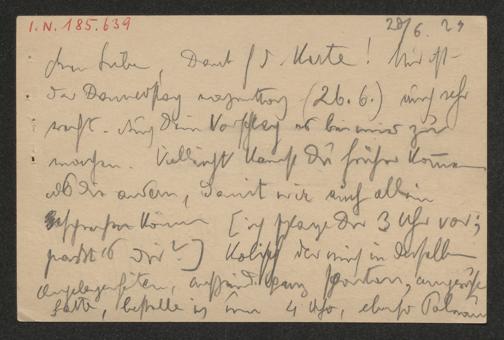 I.N. 185.639
28/6. 29
Mein Lieber, Dank f. d. Karte! Mir ist
der Donnerstag nachmittag (26.6.) auch sehr
recht. Auch Dein Vorschlag es bei mir zu
machen. Vielleicht kannst Du früher kommen
als die andern, damit wir auch allein
sprechen können [ich schlage Dir 3 Uhr vor;
passt es Dir?] der mich in derselben
Angelegenheiten,
hatte, bestelle ich um 4 Uhr, ebenso